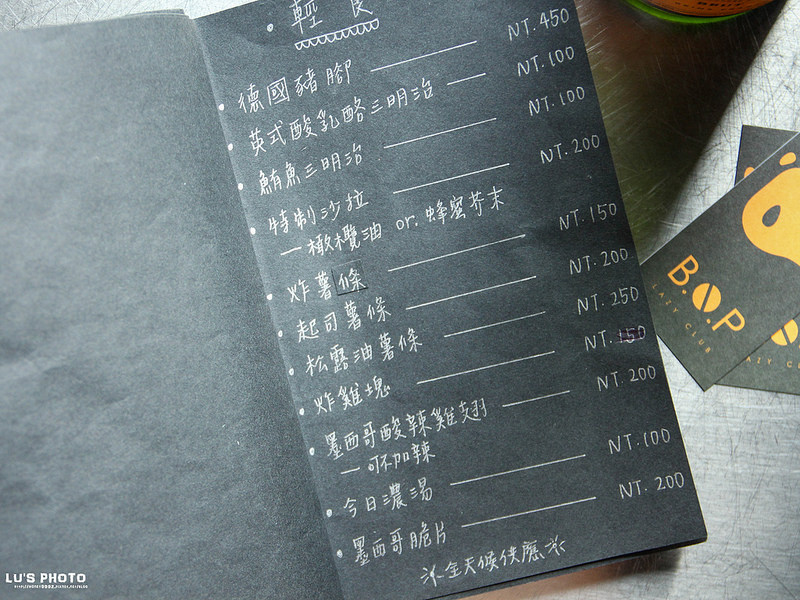 • 輕食
• 德國豬腳 NT. 450
• 英式酸乳酪三明治 NT. 100
• 鮪魚三明治 NT. 100
• 特制沙拉 NT. 200
— 橄欖油 or. 蜂蜜芥末
• 炸薯條 NT. 150
• 起司薯條 NT. 200
• 松露油薯條 NT. 250
• 炸雞塊 NT. 150
• 墨西哥酸辣雞翅 NT. 200
— 可不加辣
• 今日濃湯 NT. 100
• 墨西哥脆片 NT. 200
※全天候供應※
B.O.P
LAZY CLUB
LU'S PHOTO